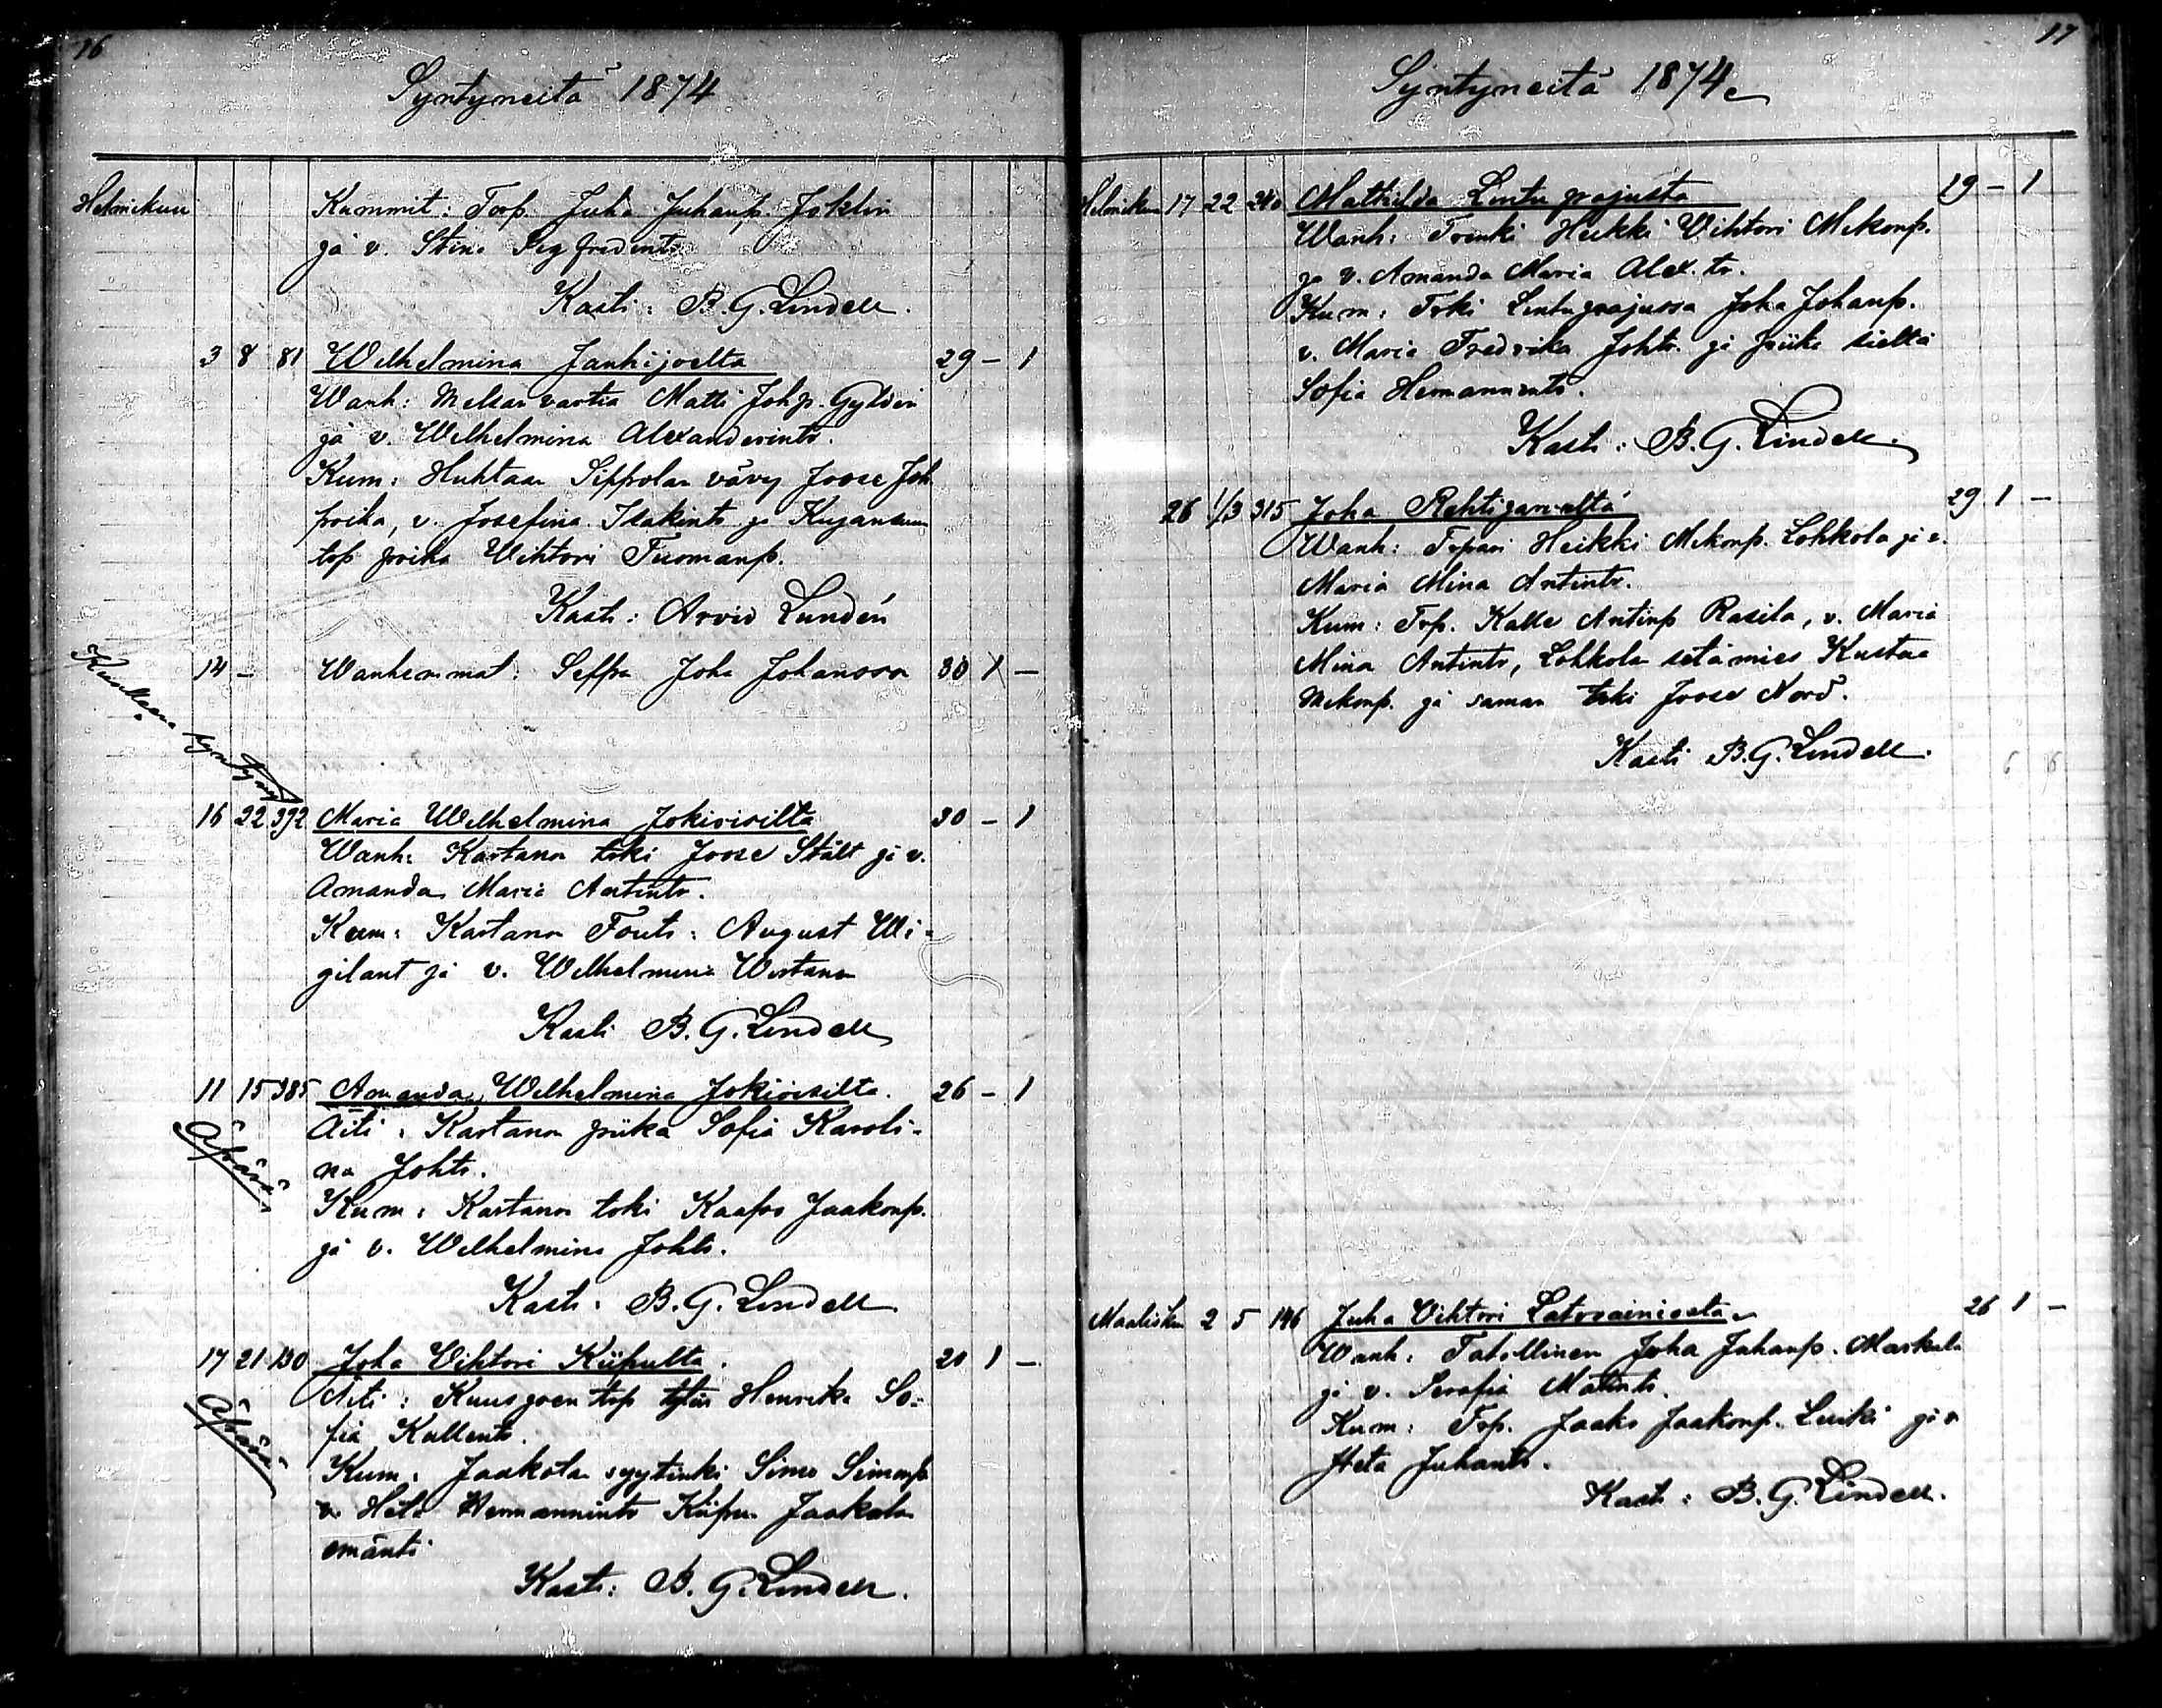 16
Syntyneitä 1874
Helmikuu Kummit: Torp. Juha Juhanp. Joklin
ja v. Stina Sigfredintr
Kasti: B. G. Lindell.
3 8 81 Wilhelmina Jankijoelta 29 - 1
Wanh: Metsän vartia Matti Johp. Gyldén
ja v. Wilhelmina Alexanderintr.
Kum: Huhtaan Sippolan vävy Joose Joh
poika, v. Josefina Isakintr ja Kujansuun
top poika Wihtori Tuomanp.
Kasti: Arvid Lundén
Kuolleena syntynyt
14 - Wanhemmat: Seppa Joha Johansson 30 1 -
16 22 392 Maria Wilhelmina Jokioisilta 30 - 1
Wanh: Kartanon toki Joose Stålt ja v.
Amanda Maria Antintr.
Kum: Kartanon Fouti: August Wi-
gilant ja v. Wilhelmina Wistana
Kasti B. G. Lindell
11 15 385 Amanda Wilhelmina Jokioisilta. 26 - 1
Äpärä
Äiti: Kartanon piika Sofia Karoli-
na Johtr.
Kum: Kartanon toki Kaapro Jaakonp.
ja v. Wilhelmina Johtr.
Kasti: B. G. Lindell
17 21 130 Joha Vihtori Kiipulta. 20 1 -
Äpärä
Äiti: Kuusjoen top tytär Henrika So-
fia Kallentr.
Kum: Jaakolan syytinki Simo Simonp
v. Heta Hermannintr Kiipun Jaakolan
emäntä
Kasti: B. G. Lindell.
17
Syntyneitä 1874
Helmikuu 17 22 240 Mathilda Lintupajusta 29 - 1
Wanh: Trenki Heikki Vihtori Mikonp.
ja v. Amanda Maria Alex. tr.
Kum: Toki Lintupajussa Joha Johanp.
v. Maria Fredrika Johtr. ja piika sieltä
Sofia Hermannintr.
Kasti: B. G. Lindell.
26 1/3 315 Joha Rehtijärveltä 29 1 -
Wanh: Torpari Heikki Mikonp. Lohkola ja v.
Maria Mina Antintr.
Kum: Trp. Kalle Antinp Rasila, v. Maria
Mina Antintr, Lohkolan setämies Kustaa
Mikonp. ja saman toki Joose Nord.
Kasti B. G. Lindell.
Maalisku 2 5 146 Juha Vihtori Latovainiosta 26 1 -
Wanh: Tatillinen Joha Juhanp. Markula
ja v. Serafia Matintr.
Kum: Trp. Jaako Jaakonp. Luiki ja v.
Heta Juhantr.
Kasti: B. G. Lindell.